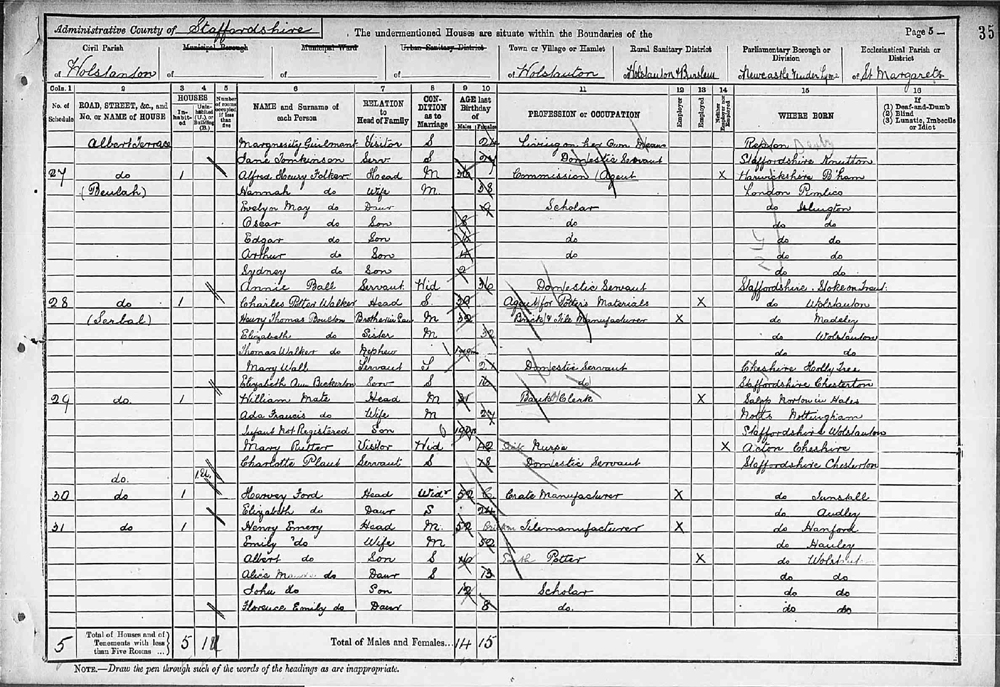 Administrative County of Staffordshire The undermentioned Houses are situate within the Boundaries of the Page 5 35
Civil Parish Municipal Borough Municipal Ward Urban Sanitary District Town or Village or Hamlet Rural Sanitary District Parliamentary Borough or Division Ecclesiastical Parish or District
of Wolstanton of of of of Wolstanton of Wolstanton & Burslem of Newcastle under Lyme of St Margarets
Cols. 1 2 3 4 5 6 7 8 9 10 11 12 13 14 15 16
No. of Schedule ROAD, STREET, &c., and No. or NAME of HOUSE HOUSES Inhabited Uninhabited (U.), or Building (B.) Number of rooms occupied if less than five NAME and Surname of each Person RELATION to Head of Family CONDITION as to Marriage AGE last Birthday of Males Females PROFESSION or OCCUPATION Employer Employed Neither Employer nor Employed WHERE BORN If (1) Deaf-and-Dumb (2) Blind (3) Lunatic, Imbecile or Idiot
Albert Terrace Visitor S 24 Living on her Own Means Repton Derby
Jane Tomkinson Serv. S Domestic Servant Staffordshire Knutton
27 do 1 Alfred Henry Folker Head M Commission Agent X Warwickshire B'ham
(Beulah) Hannah do Wife M. 38 London Pimlico
Evelyn May do Daur 9 Scholar do Islington
Oscar do Son 8 do do do
Edgar do Son do do do
Arthur do Son 4 do do do
Sydney do Son do do
Annie Ball Servant Wid 36 Domestic Servant Staffordshire. Stoke on Trent.
28 do 1 Charles Potter Walker Head S. 30 Agent for Potter's Materials X do Wolstanton
(Serbal) Henry Thomas Boulton Brother in Law M 32 Brick & Tile Manufacturer X do Madeley
Elizabeth do Sister M 32 do Wolstanton
Thomas Walker do Nephew do do
Mary Wall Servant S 21 Domestic Servant Cheshire Holly Tree
Elizabeth Ann Bickerton Serv S do Staffordshire Chesterton
29 do. 1 William Mate Head M 31 Bank Clerk X Salop Norton in Hales
Ada Francis do Wife M 27 Notts Nottingham
Infant Not Registered Son Staffordshire Wolstanton
Mary Rutter Visitor Wid 42 Nurse X Acton Cheshire
Charlotte Plant Servant S 18 Domestic Servant Staffordshire Chesterton
do. 1
30 do 1 Harvey Ford Head Widr 52 Crate Manufacturer X do Tunstall
Elizabeth do Daur S 24 do Audley
31 do 1 Henry Emery Head M. 52 Tilemanufacturer X do Hanford
Emily do Wife M 52 do Hanley
Albert do Son S Potter X do
Alice do Daur S 13 do do
John do Son 12 Scholar do do
Florence Emily do Daur 8 do. do do
5 Total of Houses and of Tenements with less than Five Rooms ... 5 Total of Males and Females... 14 15
NOTE.—Draw the pen through such of the words of the headings as are inappropriate.